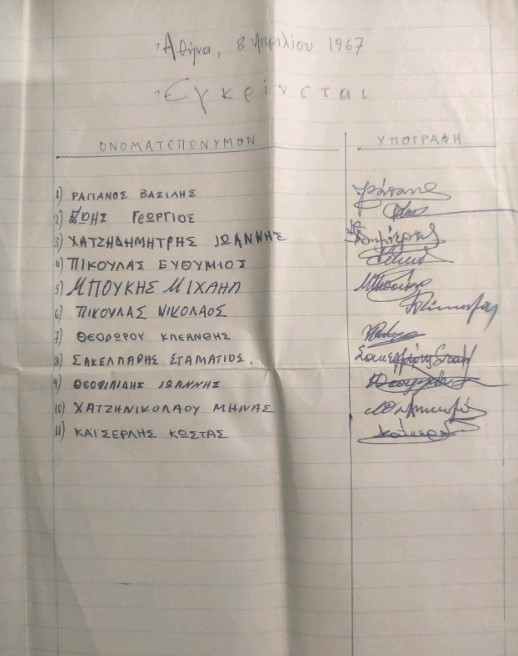 Ἀθήνα, 8 Ἀπριλίου 1967
Ἐγκρίνεται
ΟΝΟΜΑΤΕΠΩΝΥΜΟΝ ΥΠΟΓΡΑΦΗ
1) ΡΑΠΑΝΟΣ ΒΑΣΙΛΗΣ
2) ΖΩΗΣ ΓΕΩΡΓΙΟΣ
3) ΧΑΤΖΗΔΗΜΗΤΡΗΣ ΙΩΑΝΝΗΣ
4) ΠΙΚΟΥΛΑΣ ΕΥΘΥΜΙΟΣ
5) ΜΠΟΥΚΗΣ ΜΙΧΑΗΛ
6) ΠΙΚΟΥΛΑΣ ΝΙΚΟΛΑΟΣ
7) ΘΕΟΔΩΡΟΥ ΚΛΕΑΝΘΗΣ
8) ΣΑΚΕΛΛΑΡΗΣ ΣΤΑΜΑΤΙΟΣ.
9) ΘΕΟΦΙΛΙΔΗΣ ΙΩΑΝΝΗΣ
10) ΧΑΤΖΗΝΙΚΟΛΑΟΥ ΜΗΝΑΣ
11) ΚΑΙΣΕΡΛΗΣ ΚΩΣΤΑΣ